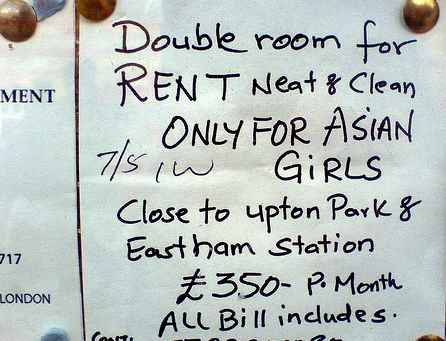 MENT
717
LONDON
Double room for
RENT Neat & Clean
ONLY FOR ASIAN
GiRLS
7/5 1W
Close to upton Park &
Eastham Station
£350- P. Month
ALL Bill includes.